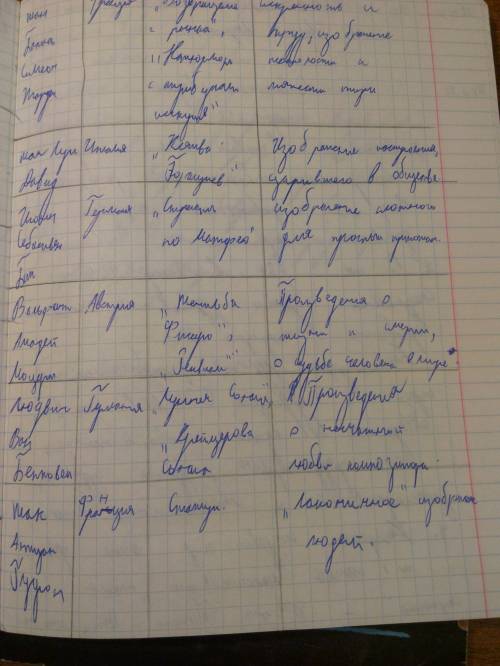 Жан Франция „Возвращение искренность и
Батист с рынка", правду, изображение
Симеон „Натюрморт
Шарден с атрибутами
искусств"
Жак Луи Италия „Клятва Изображение настроения,
Давид Горациев" царившего в обществе
Иоганн Германия „Страсти изображение сложного
Себастьян по Матфею" для простых прихожан.
Бах
Вольфганг Австрия „Женитьба Произведения о
Амадей Фигаро", жизни и смерти,
Моцарт „Реквием" о судьбе человека в мире.
Людвиг Германия „Лунная Соната", Произведения
Ван „Крейцерова о
Бетховен Соната любви композитора.
Жак Франция Статуи. „Лаконичное" изображение
Антуан людей.
Гудон